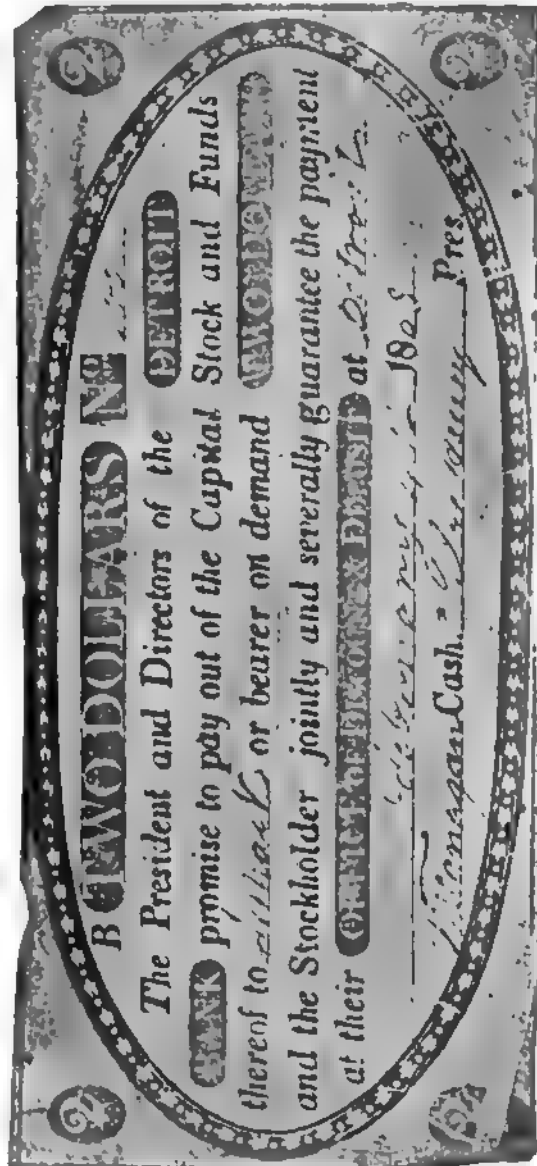 2 2
B TWO DOLLARS No
The President and Directors of the DETROIT
BANK promise to pay out of the Capital Stock and Funds
thereof to or bearer on demand TWO DOLLARS
and the Stockholder jointly and severally guarantee the payment
at their OFFICE OF DISCOUNT & DEPOSIT at Detroit
180
Flanagan Cash. Pres.
2